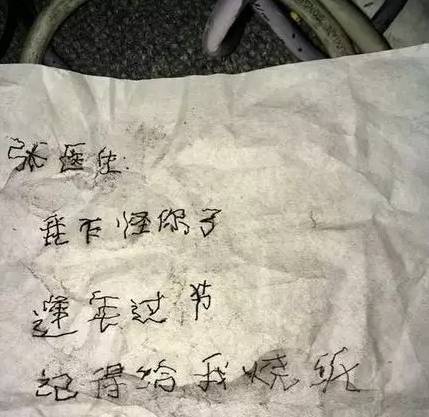 张医生:
我不怪你了
逢年过节
记得给我烧纸